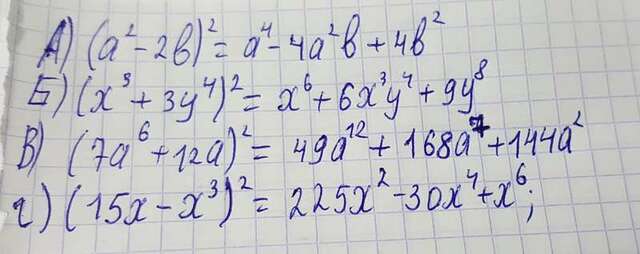 А) (a² - 2b)² = a⁴ - 4a²b + 4b²
Б) (x³ + 3y⁴)² = x⁶ + 6x³y⁴ + 9y⁸
В) (7a⁶ + 12a)² = 49a¹² + 168a⁷ + 144a²
г) (15x - x³)² = 225x² - 30x⁴ + x⁶;